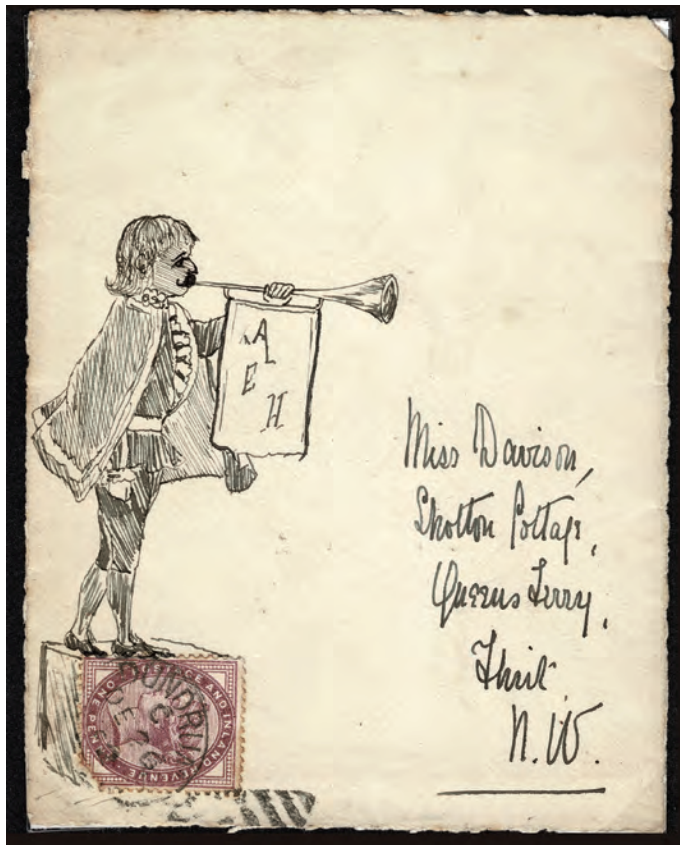 A
E
H
Miss Davison,
Shotton Cottage,
Queens Ferry,
Flint.
N.W.
POSTAGE AND INLAND REVENUE
ONE PENNY
DUNDRUM
C